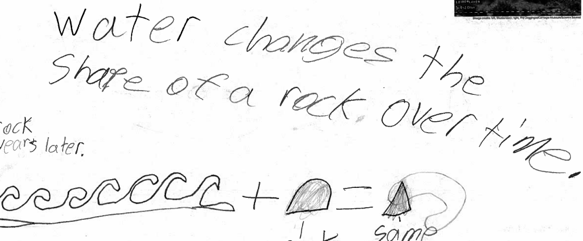 water changes the
shape of a rock over time.
rock
years later.
+ =
same